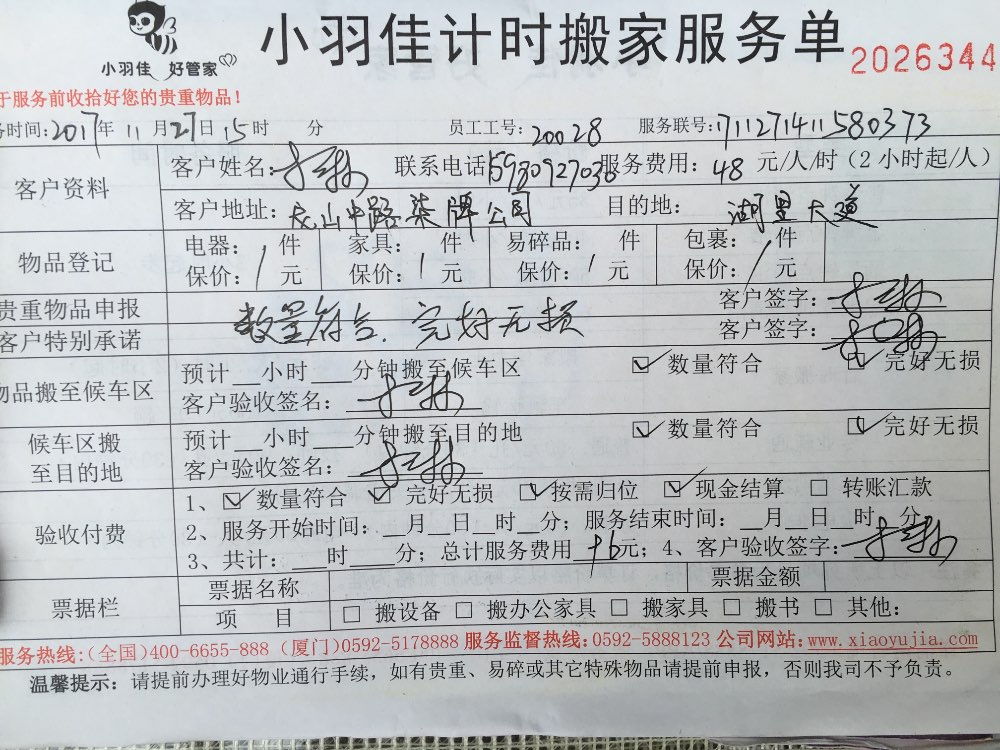 小羽佳 好管家
小羽佳计时搬家服务单 2026344
于服务前收拾好您的贵重物品！
务时间：2017年 11月27日 15时 分 员工工号：20028 服务联号：171127141158037 3
客户资料
客户姓名： 联系电话15930927038 服务费用：48 元/人/时（2小时起/人）
客户地址： 中路 牌公司 目的地： 湖里大道
物品登记
电器： 件 家具： 件 易碎品： 件 包裹： 件
保价： 元 保价： 元 保价： 元 保价： 元
贵重物品申报 客户签字：
客户特别承诺 数量符合，完好无损 客户签字：
物品搬至候车区
预计__小时___分钟搬至候车区 ☑数量符合 ☑完好无损
客户验收签名：
候车区搬至目的地
预计__小时 ___分钟搬至目的地 ☑数量符合 ☑完好无损
客户验收签名：
验收付费
1、☑数量符合 ☑完好无损 ☑按需归位 ☑现金结算 □ 转账汇款
2、服务开始时间：__月__日__时__分；服务结束时间：__月__日__时__分
3、共计：___时___分；总计服务费用 96元；4、客户验收签字：
票据栏
票据名称 票据金额
项 目 □ 搬设备 □ 搬办公家具 □ 搬家具 □ 搬书 □ 其他：
服务热线：（全国）400-6655-888（厦门）0592-5178888 服务监督热线：0592-5888123 公司网站：www.xiaoyujia.com
温馨提示：请提前办理好物业通行手续，如有贵重、易碎或其它特殊物品请提前申报，否则我司不予负责。